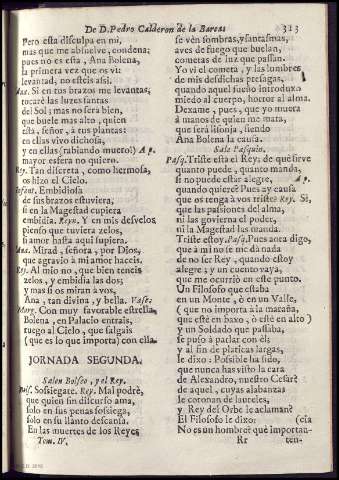 De D. Pedro Calderon de la Barca. 313
Pero esta disculpa en mi,
mas que me absuelve, condena;
pues no es esta, Ana Bolena,
la primera vez que os vi:
levantad, no esteis assi.
Ana. Si en tus brazos me levantas,
tocarè las luzes santas
del Sol; mas no serà bien,
que buele mas alto, quien
esta, señor, à tus plantas:
en ellas vivo dichosa,
y en ellas (rabiando muero!) Ap.
mayor esfera no quiero.
Rey. Tan discreta, como hermosa,
os hizo el Cielo.
Infant. Embidiosa
de sus brazos estuviera,
si en la Magestad cupiera
embidia. Reyn. Y en mis desvelos
pienso que tuviera zelos,
si amor hasta aqui supiera.
Ana. Mirad, señora, por Dios,
que agravio à mi amor haceis.
Rey. Al mio no, que bien teneis
zelos, y embidia las dos;
y mas si os miran à vos,
Ana, tan divina, y bella. Vase.
Marg. Con muy favorable estrella
Bolena, en Palacio entrais,
ruego al Cielo, que salgais
(que es lo que importa) con ella.
JORNADA SEGUNDA.
Salen Bolseo, y el Rey.
Bols. Sossiegate. Rey. Mal podrè,
que quien sin discurso ama,
solo en sus penas sossiega,
solo en su llanto descansa.
En las muertes de los Reyes
Tom. IV.
se vèn sombras, y fantasmas,
aves de fuego que buelan,
cometas de luz que passan.
Yo vi el cometa, y las lumbres
de mis desdichas presagas,
quando aquel sueño introduxo
miedo al cuerpo, horror al alma.
Dexame, pues, que yo muera
à manos de quien me mata,
que serà lisonja, siendo
Ana Bolena la causa.
Sale Pasquin.
Pasq. Triste està el Rey; de què sirve
quanto puede, quanto manda,
si no puede estar alegre, Ap.
quando quiere? Pues ay causa
que os tenga à vos triste? Rey. Si,
que las pasiones del alma,
ni las govierna el poder,
ni la Magestad las manda.
Triste estoy. Pasq. Pues aora digo,
que à mi no se me dà nada
de no ser Rey, quando estoy
alegre; y un cuento vaya,
que me ocurriò en este punto.
Un Filosofo que estaba
en un Monte, ò en un Valle,
(que no importa à la maraña,
que estè en baxo, ò estè en alto)
y un Soldado que passaba,
se puso à parlar con èl;
y al fin de platicas largas,
le dixo: Possible ha sido,
que nunca has visto la cara
de Alexandro, nuestro Cesar?
de aquel, cuyas alabanzas
le coronan de laureles,
y Rey del Orbe le aclaman?
El Filosofo le dixo: (cia
No es un hombre? què importan-
Rr ten-